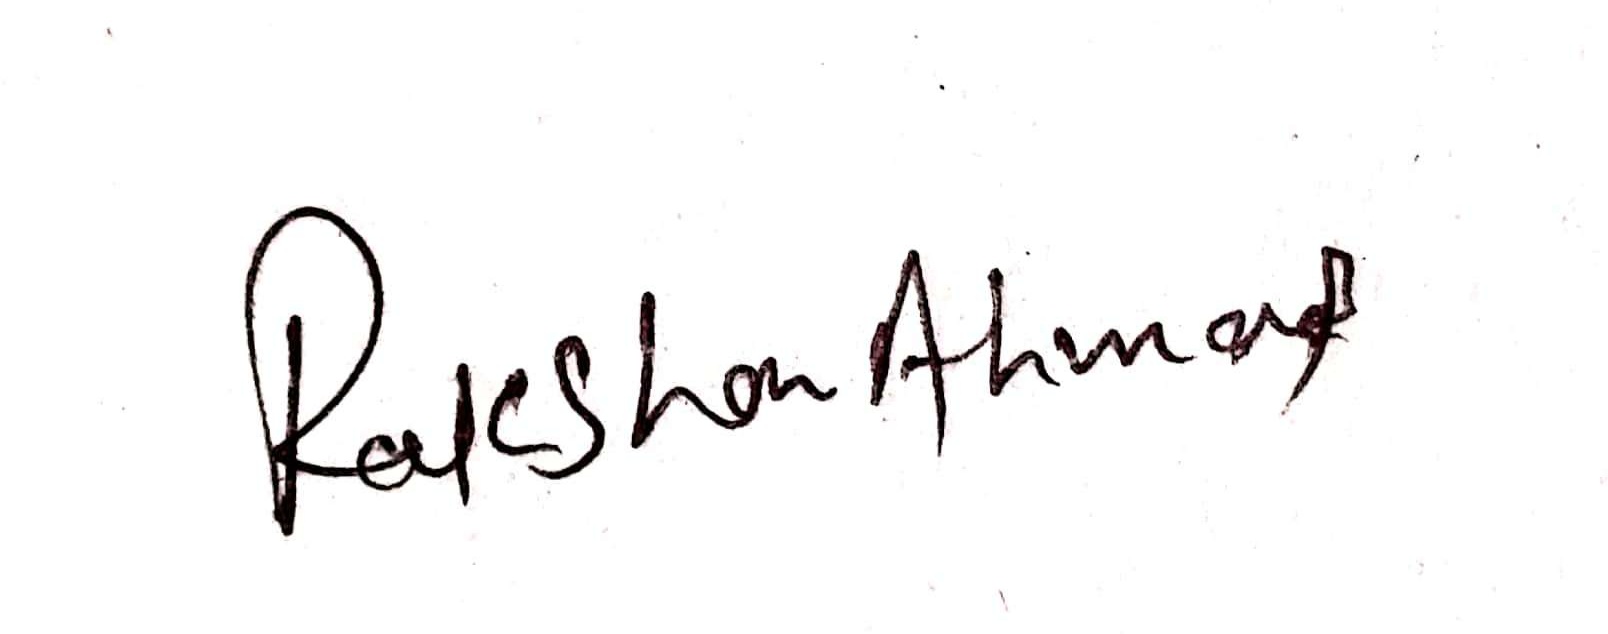 Rakshan Ahmad